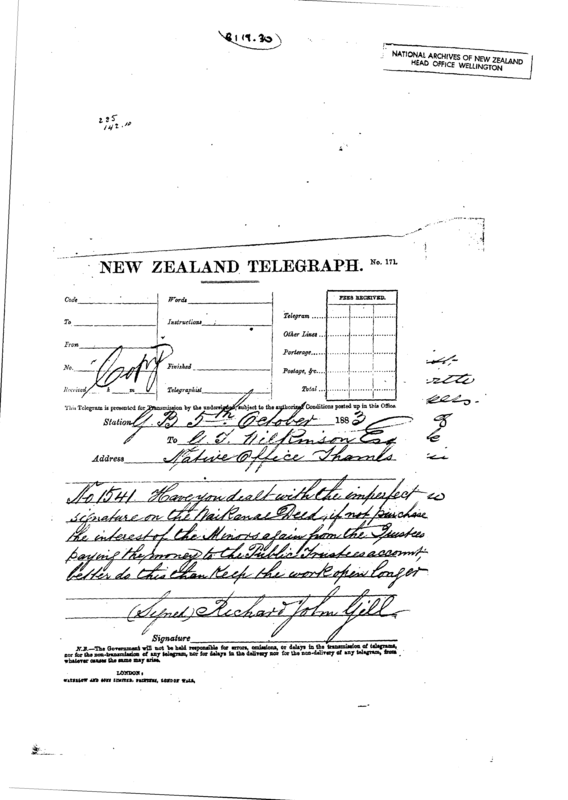 R119.30
NATIONAL ARCHIVES OF NEW ZEALAND
HEAD OFFICE WELLINGTON
285
142.10
NEW ZEALAND TELEGRAPH. No. 171.
Code
Words
FEES RECEIVED.
To
Instructions
Telegram
Other Lines
From
Porterage
No.
Copy
Finished
Postage, &c.
Received h m
Telegraphist
Total
This Telegram is presented for Transmission by the undersigned, subject to the authorized Conditions posted up in this Office
Station G.B 5th October 1883
To G. T. Wilkinson Esq
Address Native Office Thames
No 1541 Have you dealt with the imperfect
signature on the Waikanae Deed, if not purchase
the interest of the Minors again from the Trustees
paying the money to the Public Trustees account,
better do this than keep the work open longer
(Signed) Richard John Gill
Signature
N.B.—The Government will not be held responsible for errors, omissions, or delays in the transmission of telegrams,
nor for the non-transmission of any telegram, nor for delays in the delivery nor for the non-delivery of any telegram, from
whatever causes the same may arise.
LONDON:
WATERLOW AND SONS LIMITED. PRINTERS, LONDON WALL.